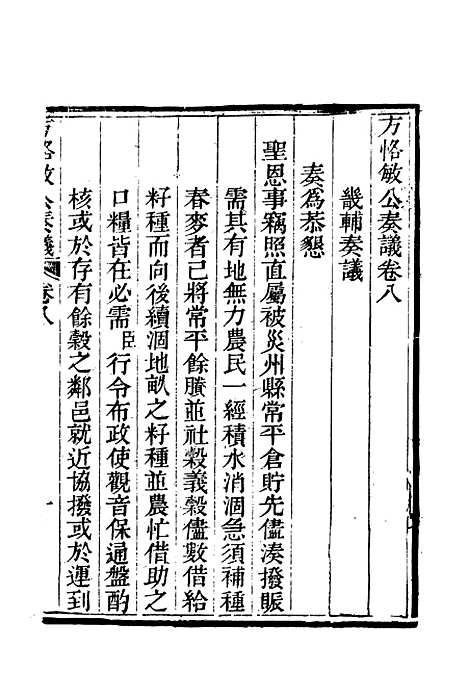 方恪敏公奏議卷八
畿輔奏議
奏爲恭懇
聖恩事竊照直屬被災州縣常平倉貯先儘湊撥賑
需其有地無力農民一經積水消涸急須補種
春麥者已將常平餘賸並社穀義穀儘數借給
籽種而向後續涸地畝之籽種並農忙借助之
口糧皆在必需臣行令布政使觀音保通盤酌
核或於存有餘穀之鄰邑就近協撥或於運到
方恪敏公奏議 卷八 一